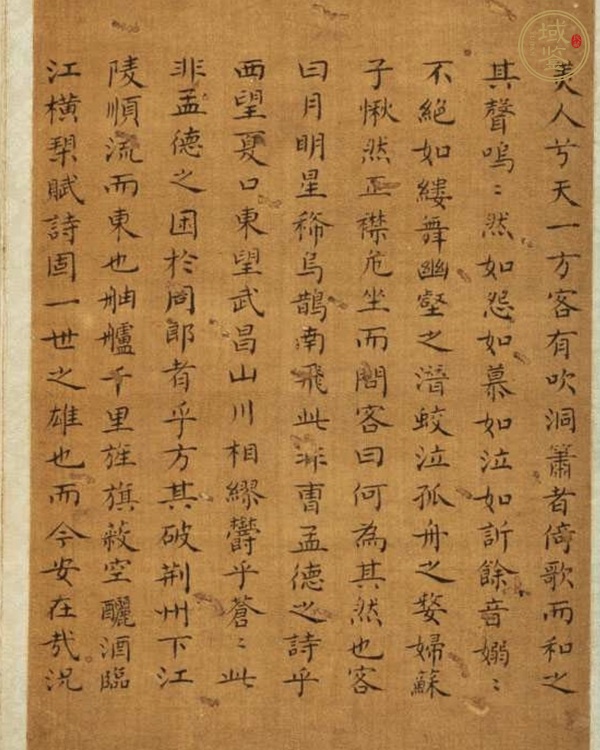 美人兮天一方客有吹洞簫者倚歌而和之
其聲嗚〻然如怨如慕如泣如訴餘音嫋〻
不絕如縷舞幽壑之潛蛟泣孤舟之嫠婦蘇
子愀然正襟危坐而問客曰何為其然也客
曰月明星稀烏鵲南飛此非曹孟德之詩乎
西望夏口東望武昌山川相繆鬱乎蒼〻此
非孟德之困於周郎者乎方其破荆州下江
陵順流而東也舳艫千里旌旗蔽空釃酒臨
江橫槊賦詩固一世之雄也而今安在哉況
域鉴